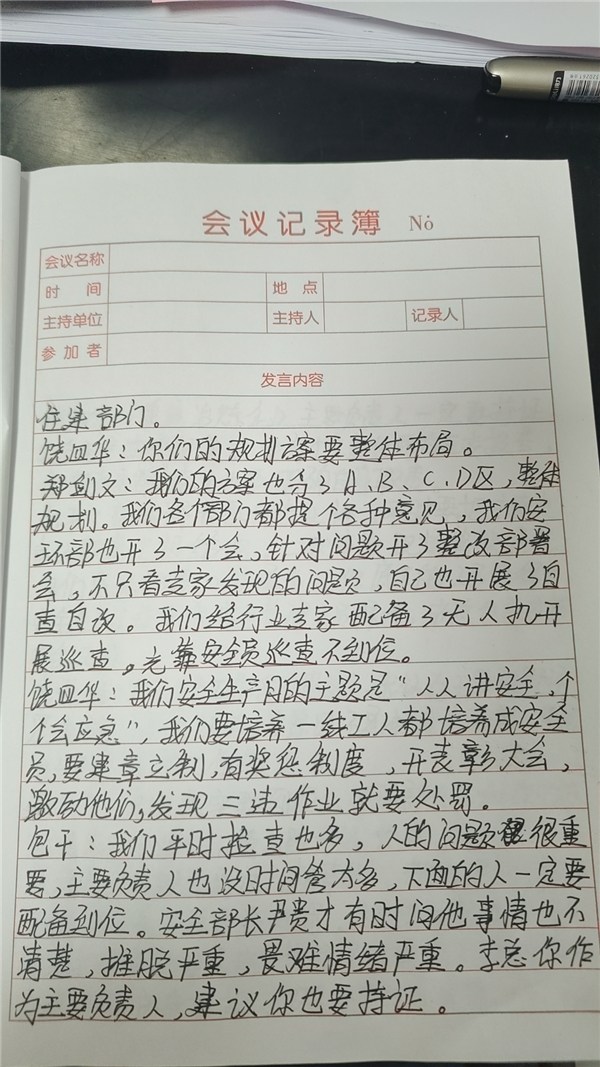 会议记录簿 No
会议名称
时 间 地 点
主持单位 主持人 记录人
参加者
发言内容
住建部门。
饶四华：你们的规划方案要整体布局。
郑剑文：我们的方案也分了A、B、C、D区，整体
规划。我们各个部门都提个各种意见，我们安
环部也开了一个会，针对问题开了整改部署
会，不只看专家发现的问题，自己也开展了自
查自改。我们给行业专家配备了无人机开
展巡查，光靠安全员巡查不到位。
饶四华：我们安全生产月的主题是“人人讲安全，个
个会应急”，我们要培养一线工人都培养成安全
员，要建章立制，有奖惩制度，开表彰大会，
激励他们，发现三违作业就要处罚。
包干：我们平时检查也多，人的问题很重
要，主要负责人也没时间管太多，下面的人一定要
配备到位。安全部长尹贵才有时间他事情也不
清楚，推脱严重，畏难情绪严重。李总你作
为主要负责人，建议你也要持证。